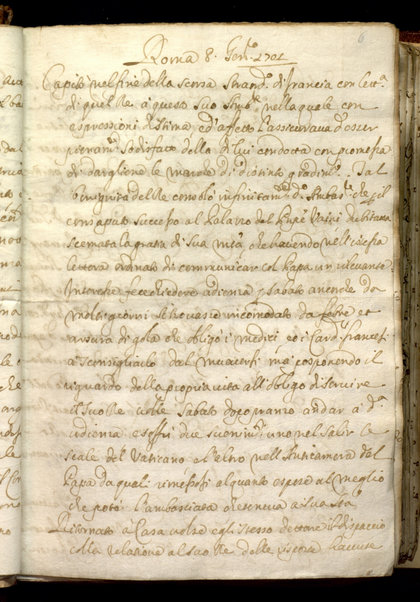 6
Roma 8. Gen.o 1701
Capitò nel fine della scorsa Straord.o di francia con lett.a
di quel Re a questo suo Amb.re nella quale con
espressioni di stima ed' affetto l'assicurava d'esser
pienam.te sodisfatto della di lui condotta con promessa
di dargliene le marche di distinta gradim.to. Tal
benignità del Re consolò infinitam.te d.o Ambas.re che p il
consaputo successo al Palazzo del Pnpe Vaini dubitava
scemata la gratia di Sua M.tà, che havendo nell'istessa
lettera ordinato di communicar col Papa un rilevante
Interesse fece chiedere udienza p sabato ancorche da
molti giorni si trovasse incomodato da febre et
arsura di gola che obligò i medici ed i Card.li francesi
a sconsigliarlo dal muoversi ma posponendo il
riguardo della propria vita all'obligo di servire
il suo Re volle Sabato dopo pranzo andar a d.a
udienza e soffrì due svenim.ti uno nel salir le
scale del Vaticano e l'altro nell'Anticamera del
Papa da quali rimessosi alquanto espose al meglio
che potè l'ambasciata che teneva a Sua S.tà
Ritornato a Casa volse egli stesso dettare il dispaccio
colla relazione al suo Re delle risposte havute